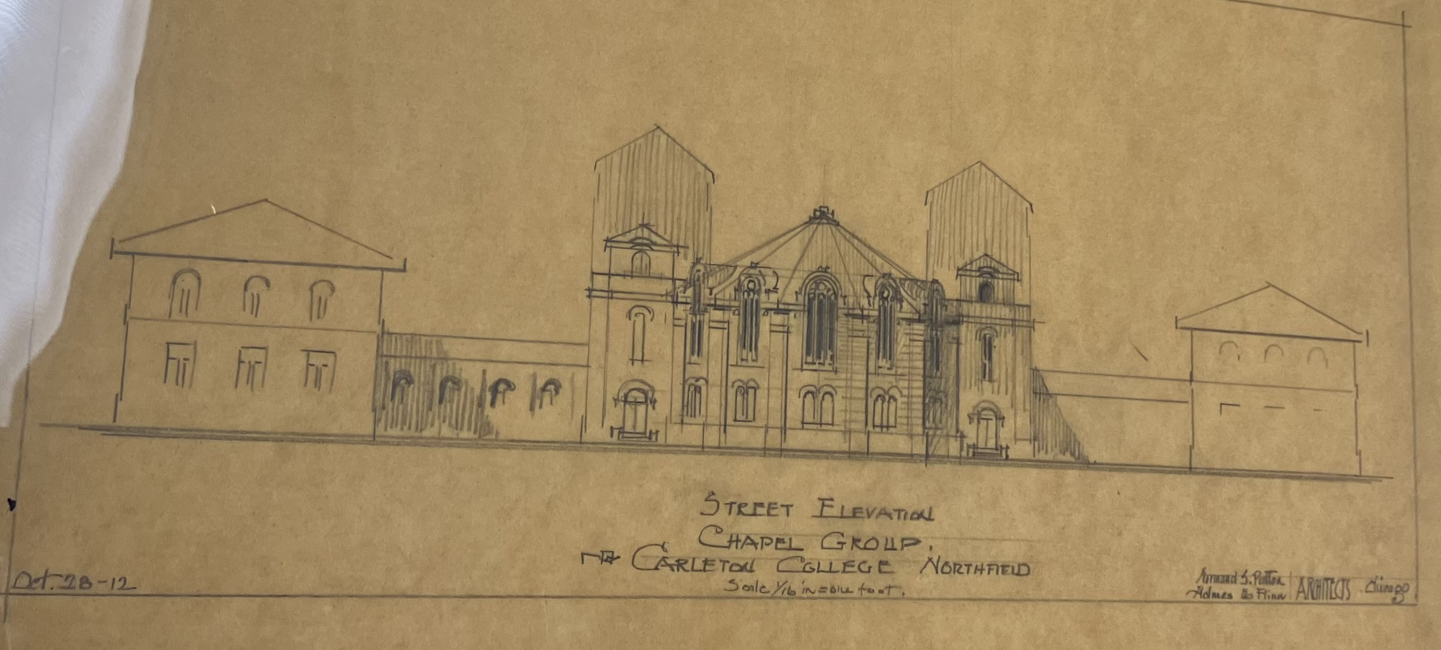 STREET ELEVATION
CHAPEL GROUP,
CARLETON COLLEGE NORTHFIELD
Scale 1/16 in = one foot.
Oct. 28-12
Normand S. Patton
Holmes & Flinn
ARCHITECTS Chicago